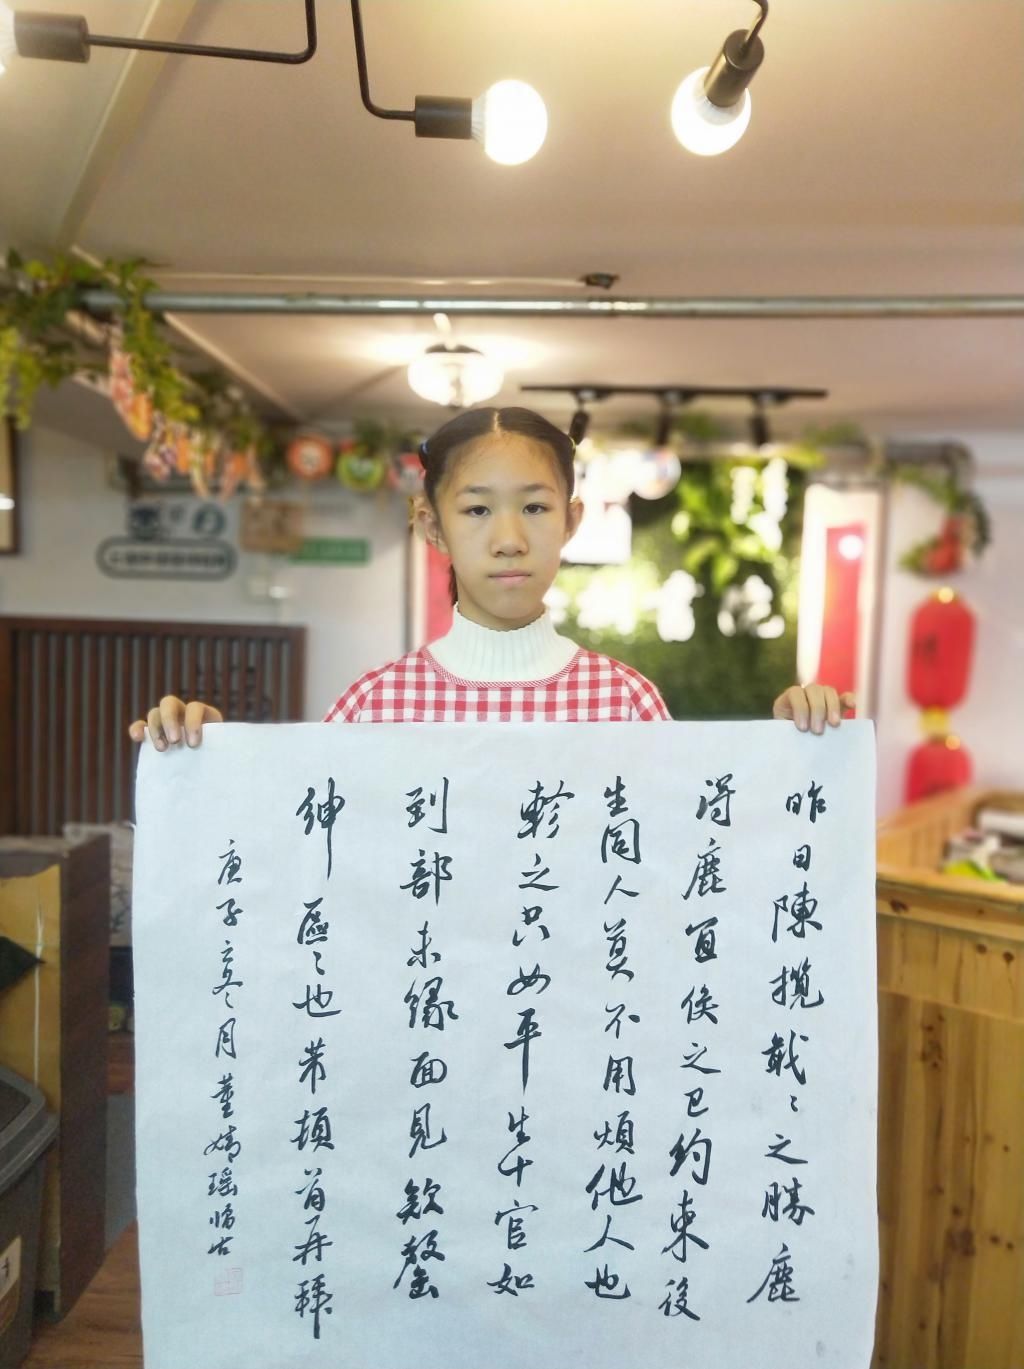 昨日陳攬戢〻之勝鹿
得鹿宜俟之已約束後
生同人莫不用煩他人也
軫之只如平生十官如
到部未緣面見欵罄
紳區〻也芾頓首再拜
庚子冬月董婧瑶临古